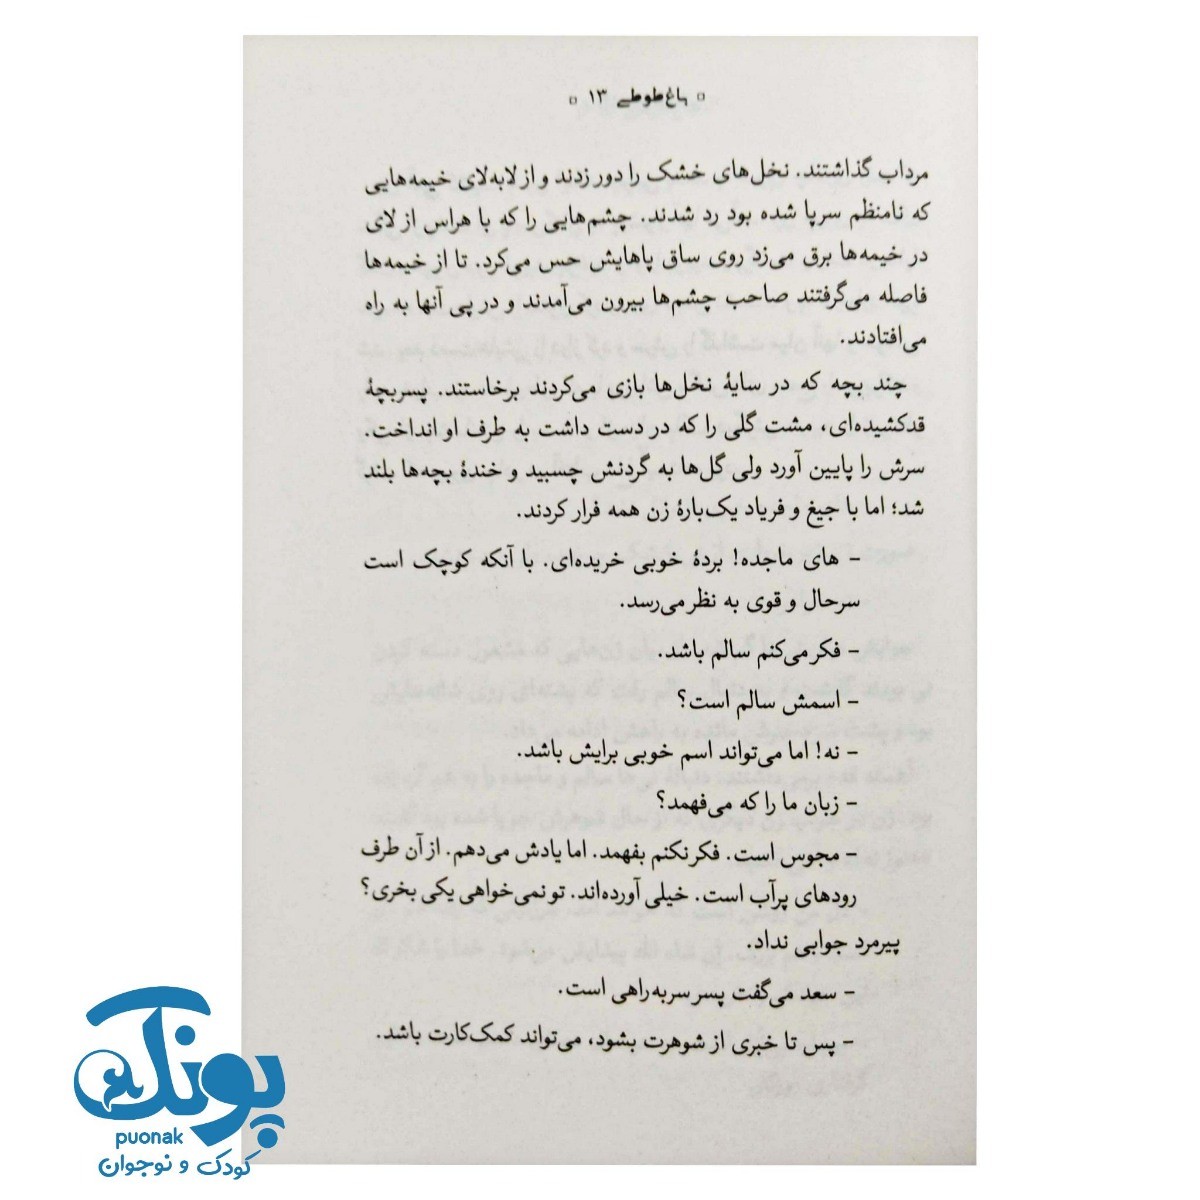 ▫ باغ طوطی ۱۳ ▫
مرداب گذاشتند. نخل‌های خشک را دور زدند و از لابه‌لای خیمه‌هایی
که نامنظم سرپا شده بود رد شدند. چشم‌هایی را که با هراس از لای
در خیمه‌ها برق می‌زد روی ساق پاهایش حس می‌کرد. تا از خیمه‌ها
فاصله می‌گرفتند صاحب چشم‌ها بیرون می‌آمدند و در پی آنها به راه
می‌افتادند.
چند بچه که در سایهٔ نخل‌ها بازی می‌کردند برخاستند. پسربچهٔ
قدکشیده‌ای، مشت گلی را که در دست داشت به طرف او انداخت.
سرش را پایین آورد ولی گل‌ها به گردنش چسبید و خندهٔ بچه‌ها بلند
شد؛ اما با جیغ و فریاد یک‌بارهٔ زن همه فرار کردند.
– های ماجده! بردهٔ خوبی خریده‌ای. با آنکه کوچک است
سرحال و قوی به نظر می‌رسد.
– فکر می‌کنم سالم باشد.
– اسمش سالم است؟
– نه! اما می‌تواند اسم خوبی برایش باشد.
– زبان ما را که می‌فهمد؟
– مجوس است. فکر نکنم بفهمد. اما یادش می‌دهم. از آن طرف
رودهای پرآب است. خیلی آورده‌اند. تو نمی‌خواهی یکی بخری؟
پیرمرد جوابی نداد.
– سعد می‌گفت پسر سربه‌راهی است.
– پس تا خبری از شوهرت بشود، می‌تواند کمک‌کارت باشد.
پونک
puonak
کودک و نوجوان